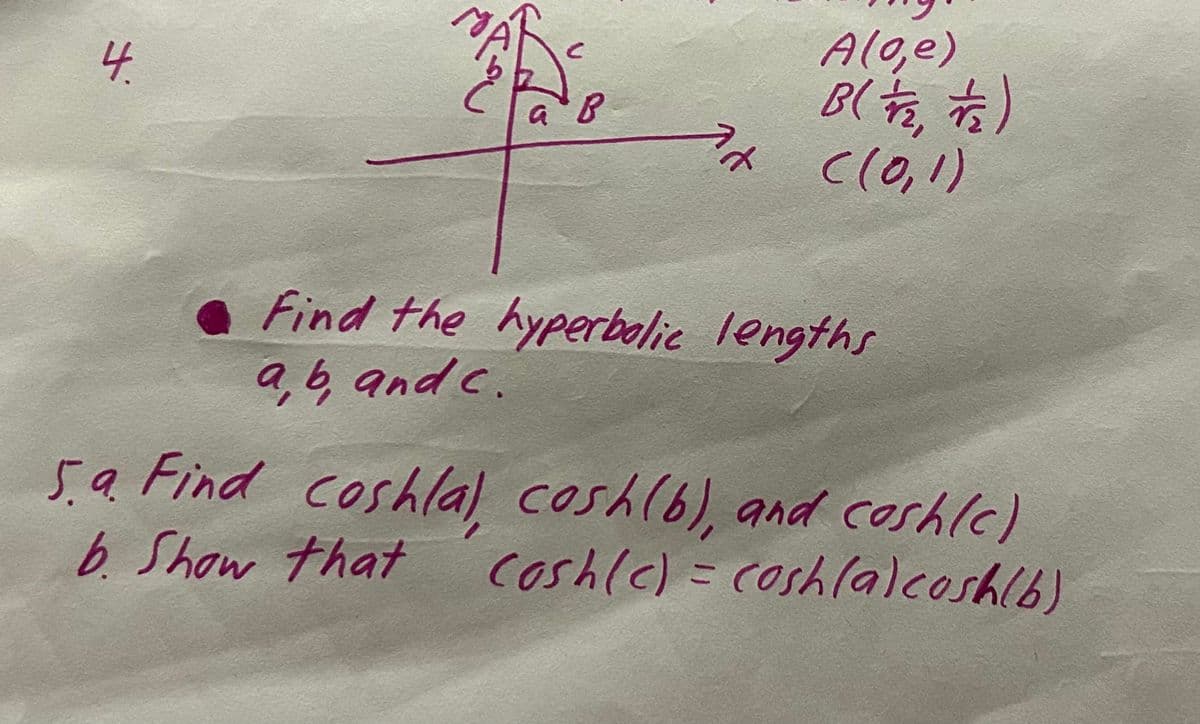 4.
y
A
c
b
C
a
B
x
A(0,e)
B(1/√2, 1/√2)
C(0,1)
Find the hyperbolic lengths
a, b, and c.
5.a. Find cosh(a), cosh(b), and cosh(c)
b. Show that cosh(c) = cosh(a)cosh(b)